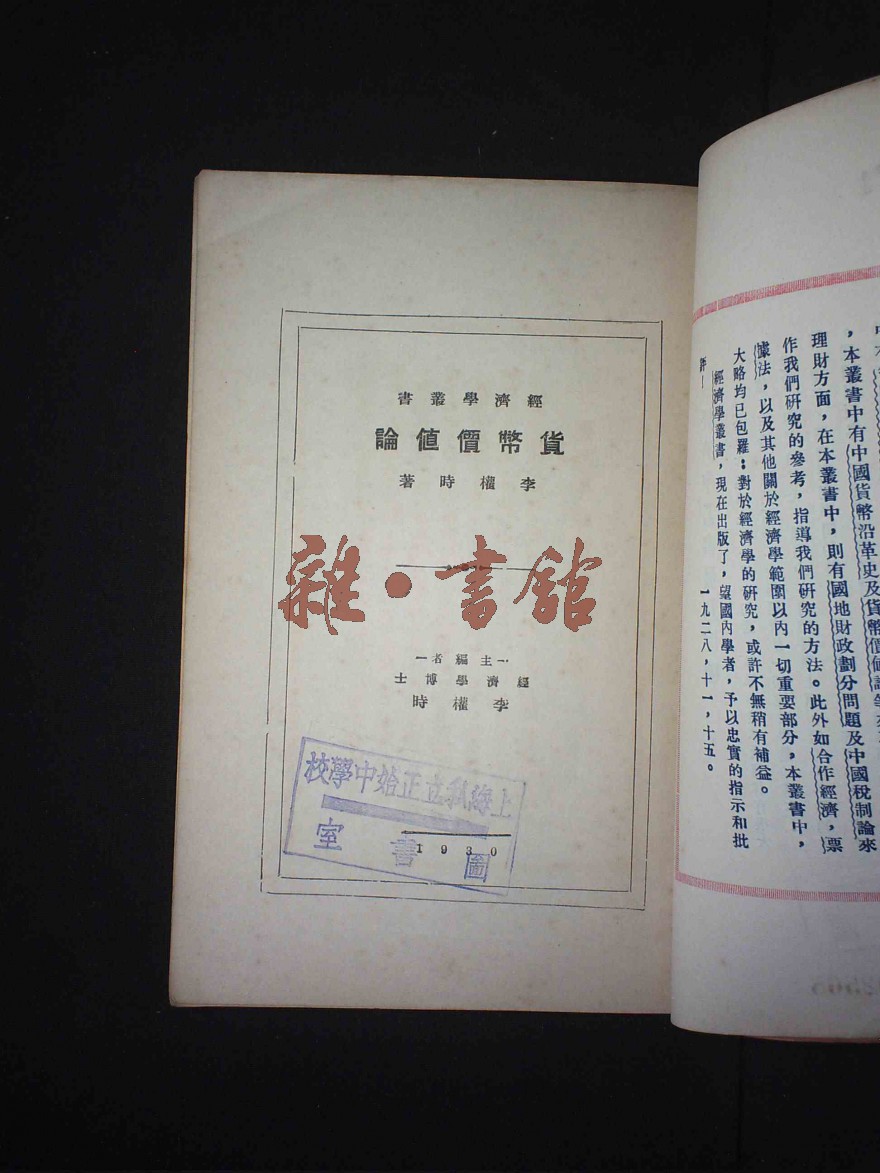 經濟學叢書
貨幣價值論
李權時著
雜·書館
—主編者—
經濟學博士
李權時
1930
上海私立正始中學校
圖書室
，本叢書中有中國貨幣沿革史及貨幣價值論等
理財方面，在本叢書中，則有國地財政劃分問題及中國稅制論來
作我們研究的參考，指導我們研究的方法。此外如合作經濟，票
據法，以及其他關於經濟學範圍以內一切重要部分，本叢書中，
大略均已包羅；對於經濟學的研究，或許不無稍有補益。
經濟學叢書，現在出版了，望國內學者，予以忠實的指示和批
評！
一九二八，十一，十五。